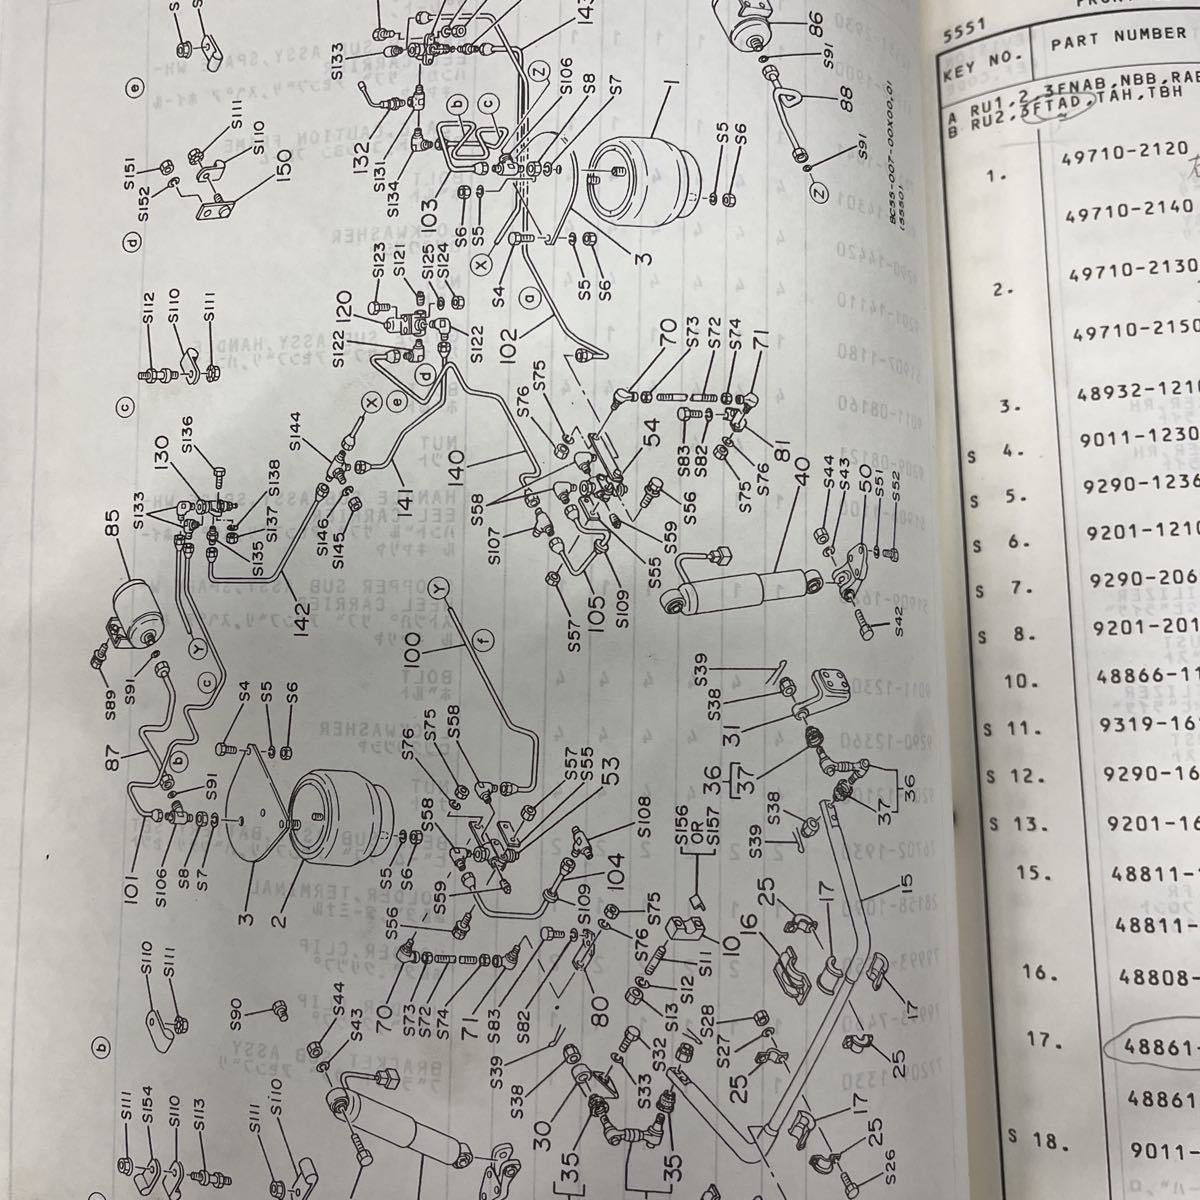 5551
KEY NO.
PART NUMBER
A RU1,2,3FNAB,NBB,RAB
B RU2,3FTAD,TAH,TBH
1.
49710-2120
49710-2140
2.
49710-2130
49710-2150
3.
48932-1210
S 4.
9011-1230
S 5.
9290-1236
S 6.
9201-1210
S 7.
9290-206
S 8.
9201-201
10.
48866-11
S 11.
9319-16
S 12.
9290-16
S 13.
9201-16
15.
48811-
48811-
16.
48808-
17.
48861-
48861
S 18.
9011-
BC55-007-00X00,01
155501
e
S151
S152
S111
S110
150
d
S112
S110
S111
c
S133
S131
132
S134
103
b
c
Z
S106
S8
S7
1
S5
S6
S6
S5
X
S4
3
S5
S6
a
102
86
S91
88
S91
Z
143
S123
S121
S125
S124
120
S122
S122
d
e
X
S144
S136
130
S133
85
S138
S137
S135
S146
S145
141
140
142
S75
S76
S58
S107
S57
105
S109
S55
S59
S56
54
70
S73
S72
S74
71
S83
S82
81
S76
S75
40
S44
S43
50
S51
S52
S42
Y
100
f
S89
S91
Y
c
87
b
S4
S5
S6
101
S106
S8
S7
S91
3
2
S5
S6
S58
S76
S75
S58
S57
S55
53
S59
S56
S108
104
S109
S75
S76
80
70
S73
S72
S74
71
S83
S82
S39
S38
31
36
37
36
37
S38
S39
S156
OR
S157
10
S11
S12
S13
25
17
16
15
17
25
S28
S27
25
17
25
S26
S32
S33
35
35
30
S38
S39
S44
S43
S90
S110
S111
b
S111
S154
S110
S113
S111
S110